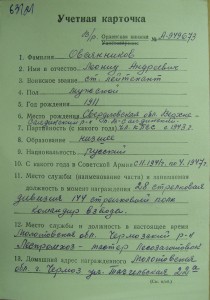 Учетная карточка
в/р.
Орденская книжка №
1. Фамилия Овчинников
2. Имя и отчество Леонид Андреевич
3. Воинское звание ст. лейтенант
4. Пол мужской
5. Год рождения 1911
6. Место рождения Свердловская обл.
7. Партийность (с какого года) чл. КПСС с 1943 г.
8. Образование низшее
9. Национальность Русский
10. С какого года в Советской Армии
11. Место службы (наименование части) и занимаемая
должность в момент награждения 28 стрелковая
дивизия 144 стрелковый полк
командир взвода
12. Место службы и должность в настоящее время
Молотовская обл. Чермозский р-н
мастер
13. Домашний адрес награжденного Молотовская
обл. г. Чермоз ул.